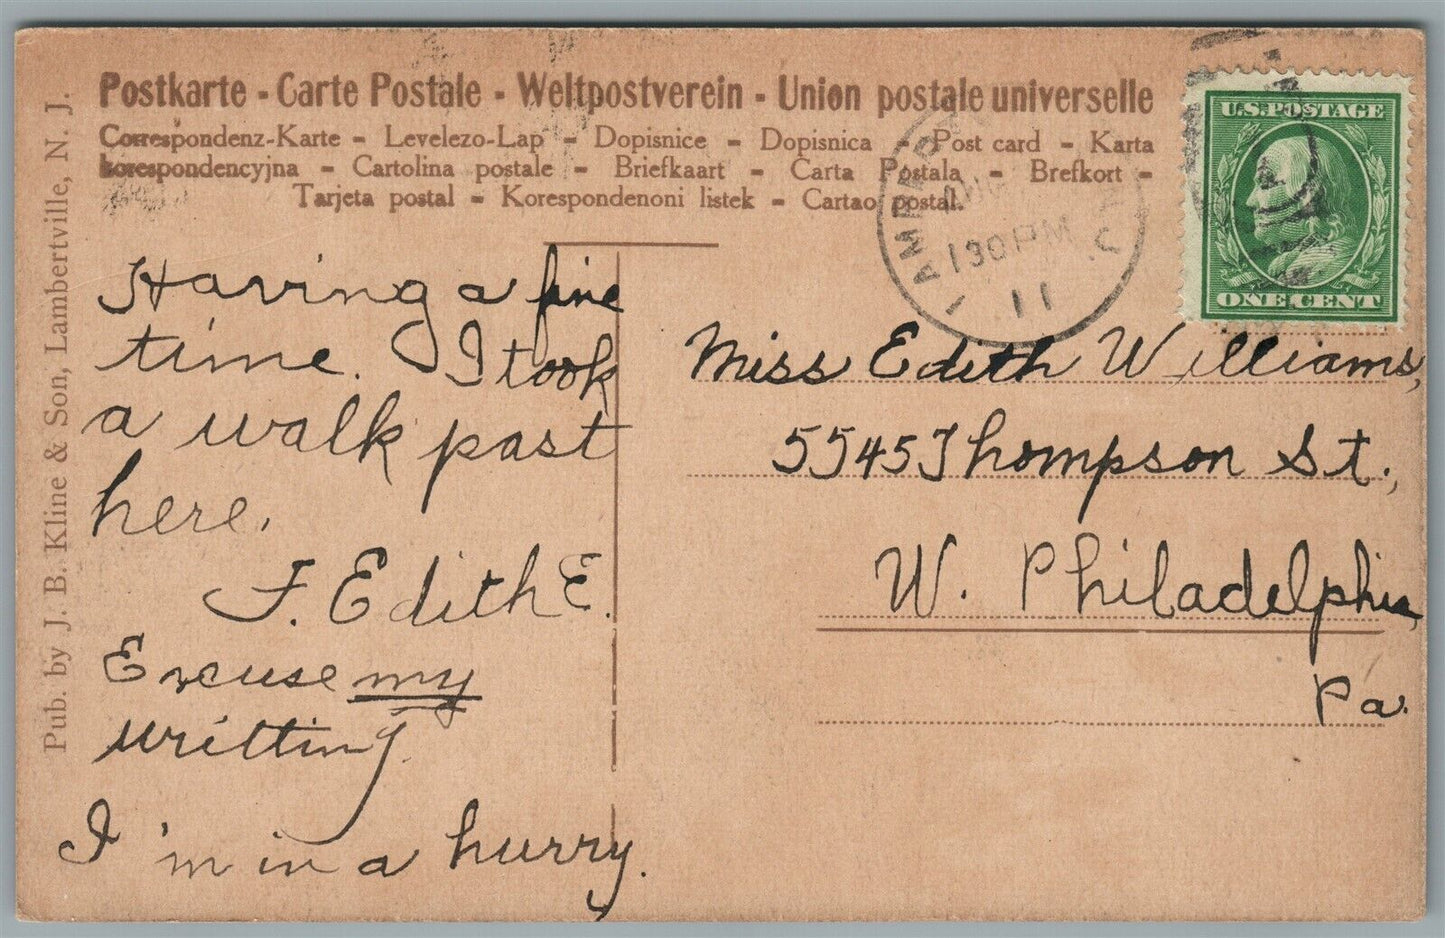 Postkarte - Carte Postale - Weltpostverein - Union postale universelle
Correspondenz-Karte - Levelezo-Lap - Dopisnice - Dopisnica - Post card - Karta
korespondencyjna - Cartolina postale - Briefkaart - Carta Postala - Brefkort -
Tarjeta postal - Korespondenoni listek - Cartao postal.
Pub. by J. B. Kline & Son, Lambertville, N. J.
U.S. POSTAGE
ONE CENT
130 PM
11
Having a fine
time. I took
a walk past
here.
F. Edith E.
Excuse my
writting
I'm in a hurry.
Miss Edith Williams,
5545 Thompson St.,
W. Philadelphia,
Pa.